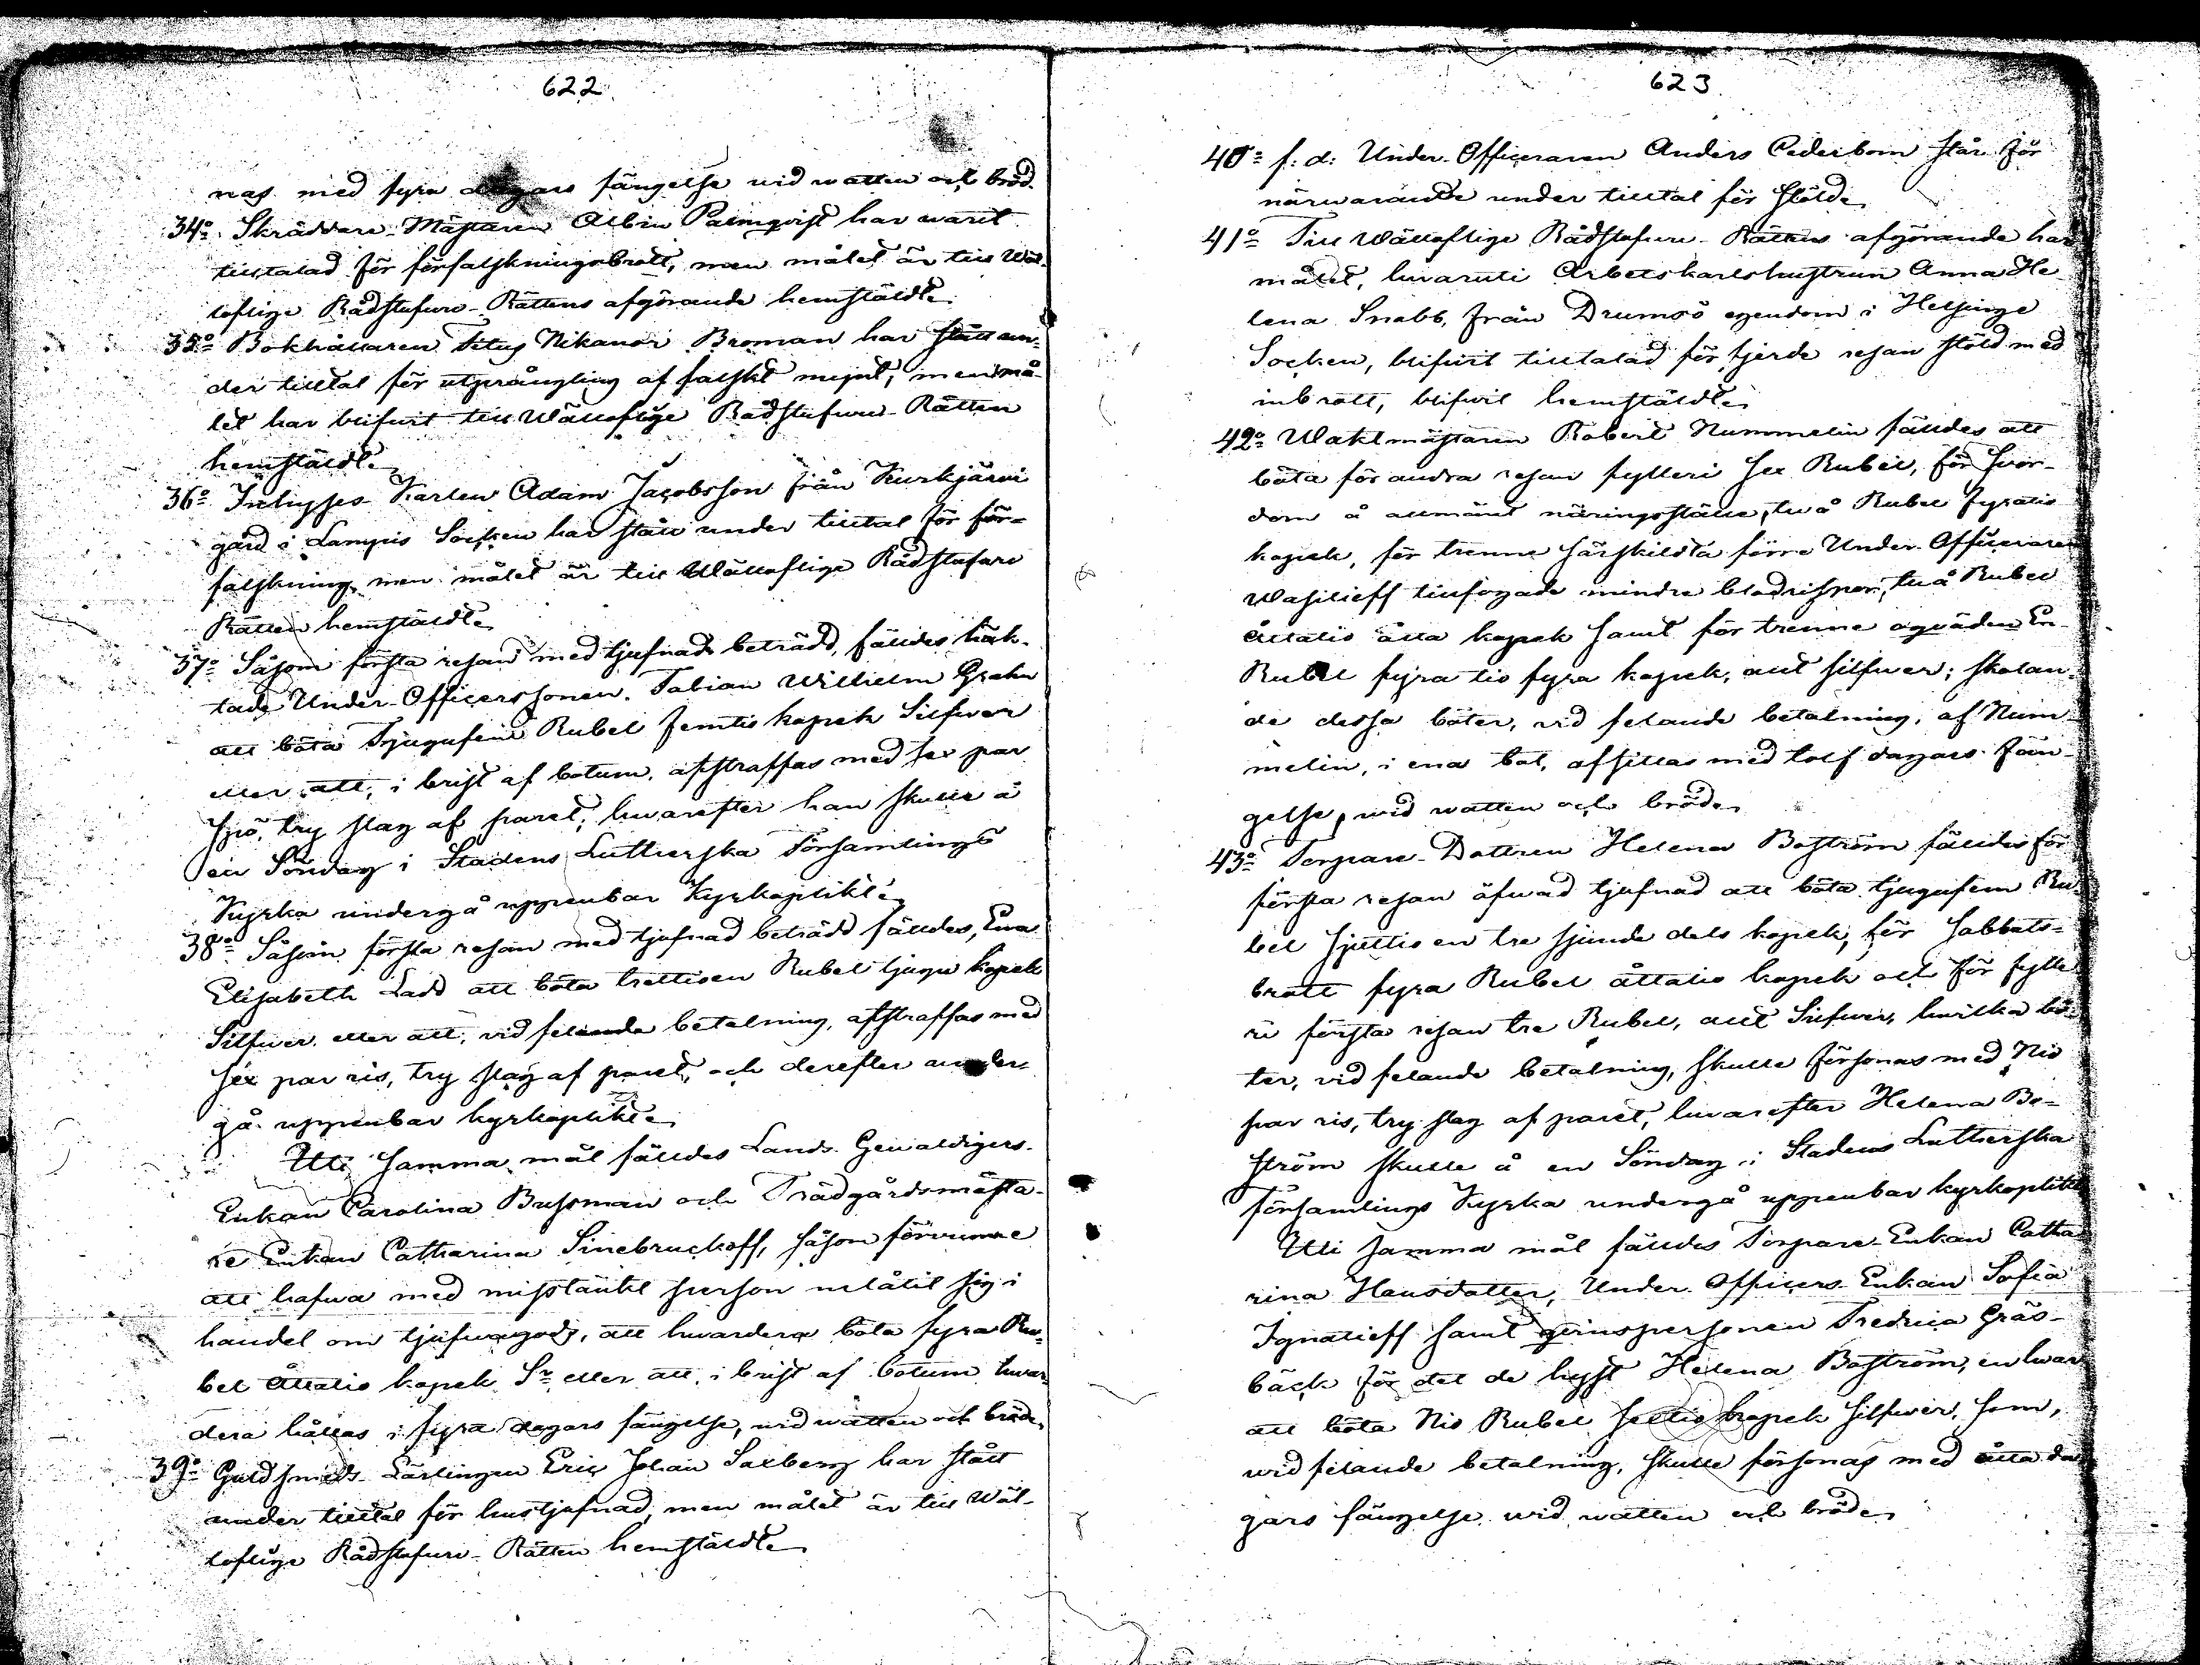 622
nas med fyra dagars fängelse vid watten och bröd.
34o Skräddare-Mästaren Albin Palmqvist har warit
tilltalad för förfalskningsbrott, men målet är till Wäl-
loflige Rådstufwu-Rättens afgörande hemstäldt.
35o Bokhållaren Titus Nikanor Broman har stått un-
der tilltal för utprångling af falskt mynt, men må-
let har blifwit till Wälloflige Rådstufwu-Rätten
hemstäldt.
36o Inhyses Karlen Adam Jacobsson från Kurkjärwi
gård i Lampis Socken har stått under tilltal för för-
falskning, men målet är till Wälloflige Rådstufwu
Rätten hemstäldt.
37o Såsom första resan med tjufnad beträdd, fälldes häk-
tade Under-Officerssonen Fabian Wilhelm Grahn
att böta Tjugufem Rubel femtio kopek Silfwer
eller att, i brist af botum, afstraffas med sex par
spö, try slag af paret, hwarefter han skulle å
en Söndag i Stadens Lutherska Församlings
Kyrka undergå uppenbar Kyrkoplikt.
38o Såsom första resan med tjufnad beträdd fälldes, Ewa
Elisabeth Ladd att böta trettioen Rubel tjugu kopek
Silfwer eller att, vid felande betalning, afstraffas med
sex par ris, try slag af paret, och derefter under-
gå uppenbar kyrkoplikt.
Uti samma mål fälldes Lands-Gewaldigers-
Enkan Carolina Bussman och Trädgårdsmästa-
re Enkan Catharina Sinebruckoff, såsom förwunne
att hafwa med misstänkt person inlåtit sig i
handel om tjufwagods, att hwardera böta fyra Ru-
bel åttatio kopek Sr eller att, i brist af botum hwar-
dera hållas i fyra dagars fängelse, wid watten och bröd.
39o Guldsmeds-Lärlingen Eric Johan Saxberg har stått
under tilltal för hustjufnad, men målet är till Wäl-
loflige Rådstufwu-Rätten hemstäldt.
623
40o f: d: Under-Officeraren Anders Cederbom står för
närwarande under tilltal för stöld.
41o Till Wälloflige Rådstufwu-Rättens afgörande har
målet, hwaruti Arbetskarlshustrun Anna He-
lena Snabb, från Drumsö egendom i Helsinge
Socken, blifwit tilltalad för fjerde resan stöld med
inbrott, blifwit hemstäldt.
42o Waktmästaren Robert Nummelin fälldes att
böta för andra resan fylleri sex Rubel, för swor-
dom å allmänt näringsställe, två Rubel fyratio
kopek, för trenne särskildta förre Under-Officeraren
Wasilieff tillfogade mindre blodrisper, två Rubel
åttatio åtta kopek samt för trenne oqväden En
Rubel fyratio fyra kopek, allt silfwer; skolan-
de dessa böter, vid felande betalning, af Num-
melin, i ena bot, afsittas med tolf dagars fän-
gelse, wid watten och bröd.
43o Torpare-Dottren Helena Boström fälldes för
första resan öfwad tjufnad att böta tjugufem Ru-
bel sjuttioen tre sjunde dels kopek, för sabbats-
brott fyra Rubel åttatio kopek och för fylle-
ri första resan tre Rubel, allt Silfwer, hwilka bö-
ter, vid felande betalning, skulle försonas med Nio
par ris, try slag af paret, hwarefter Helena Bo-
ström skulle å en Söndag i Stadens Lutherska
Församlings Kyrka undergå uppenbar kyrkoplikt
Uti samma mål fälldes Torpare-Enkan Catha-
rina Hansdotter, Under-Officers-Enkan Sofia
Ignatieff samt qwinspersonen Fredrica Gräs-
bäck för det de hyst Helena Boström, en hwar
att böta Nio Rubel sextio kopek silfwer, som,
wid felande betalning, skulle försonas med åtta da-
gars fängelse wid watten och bröd.